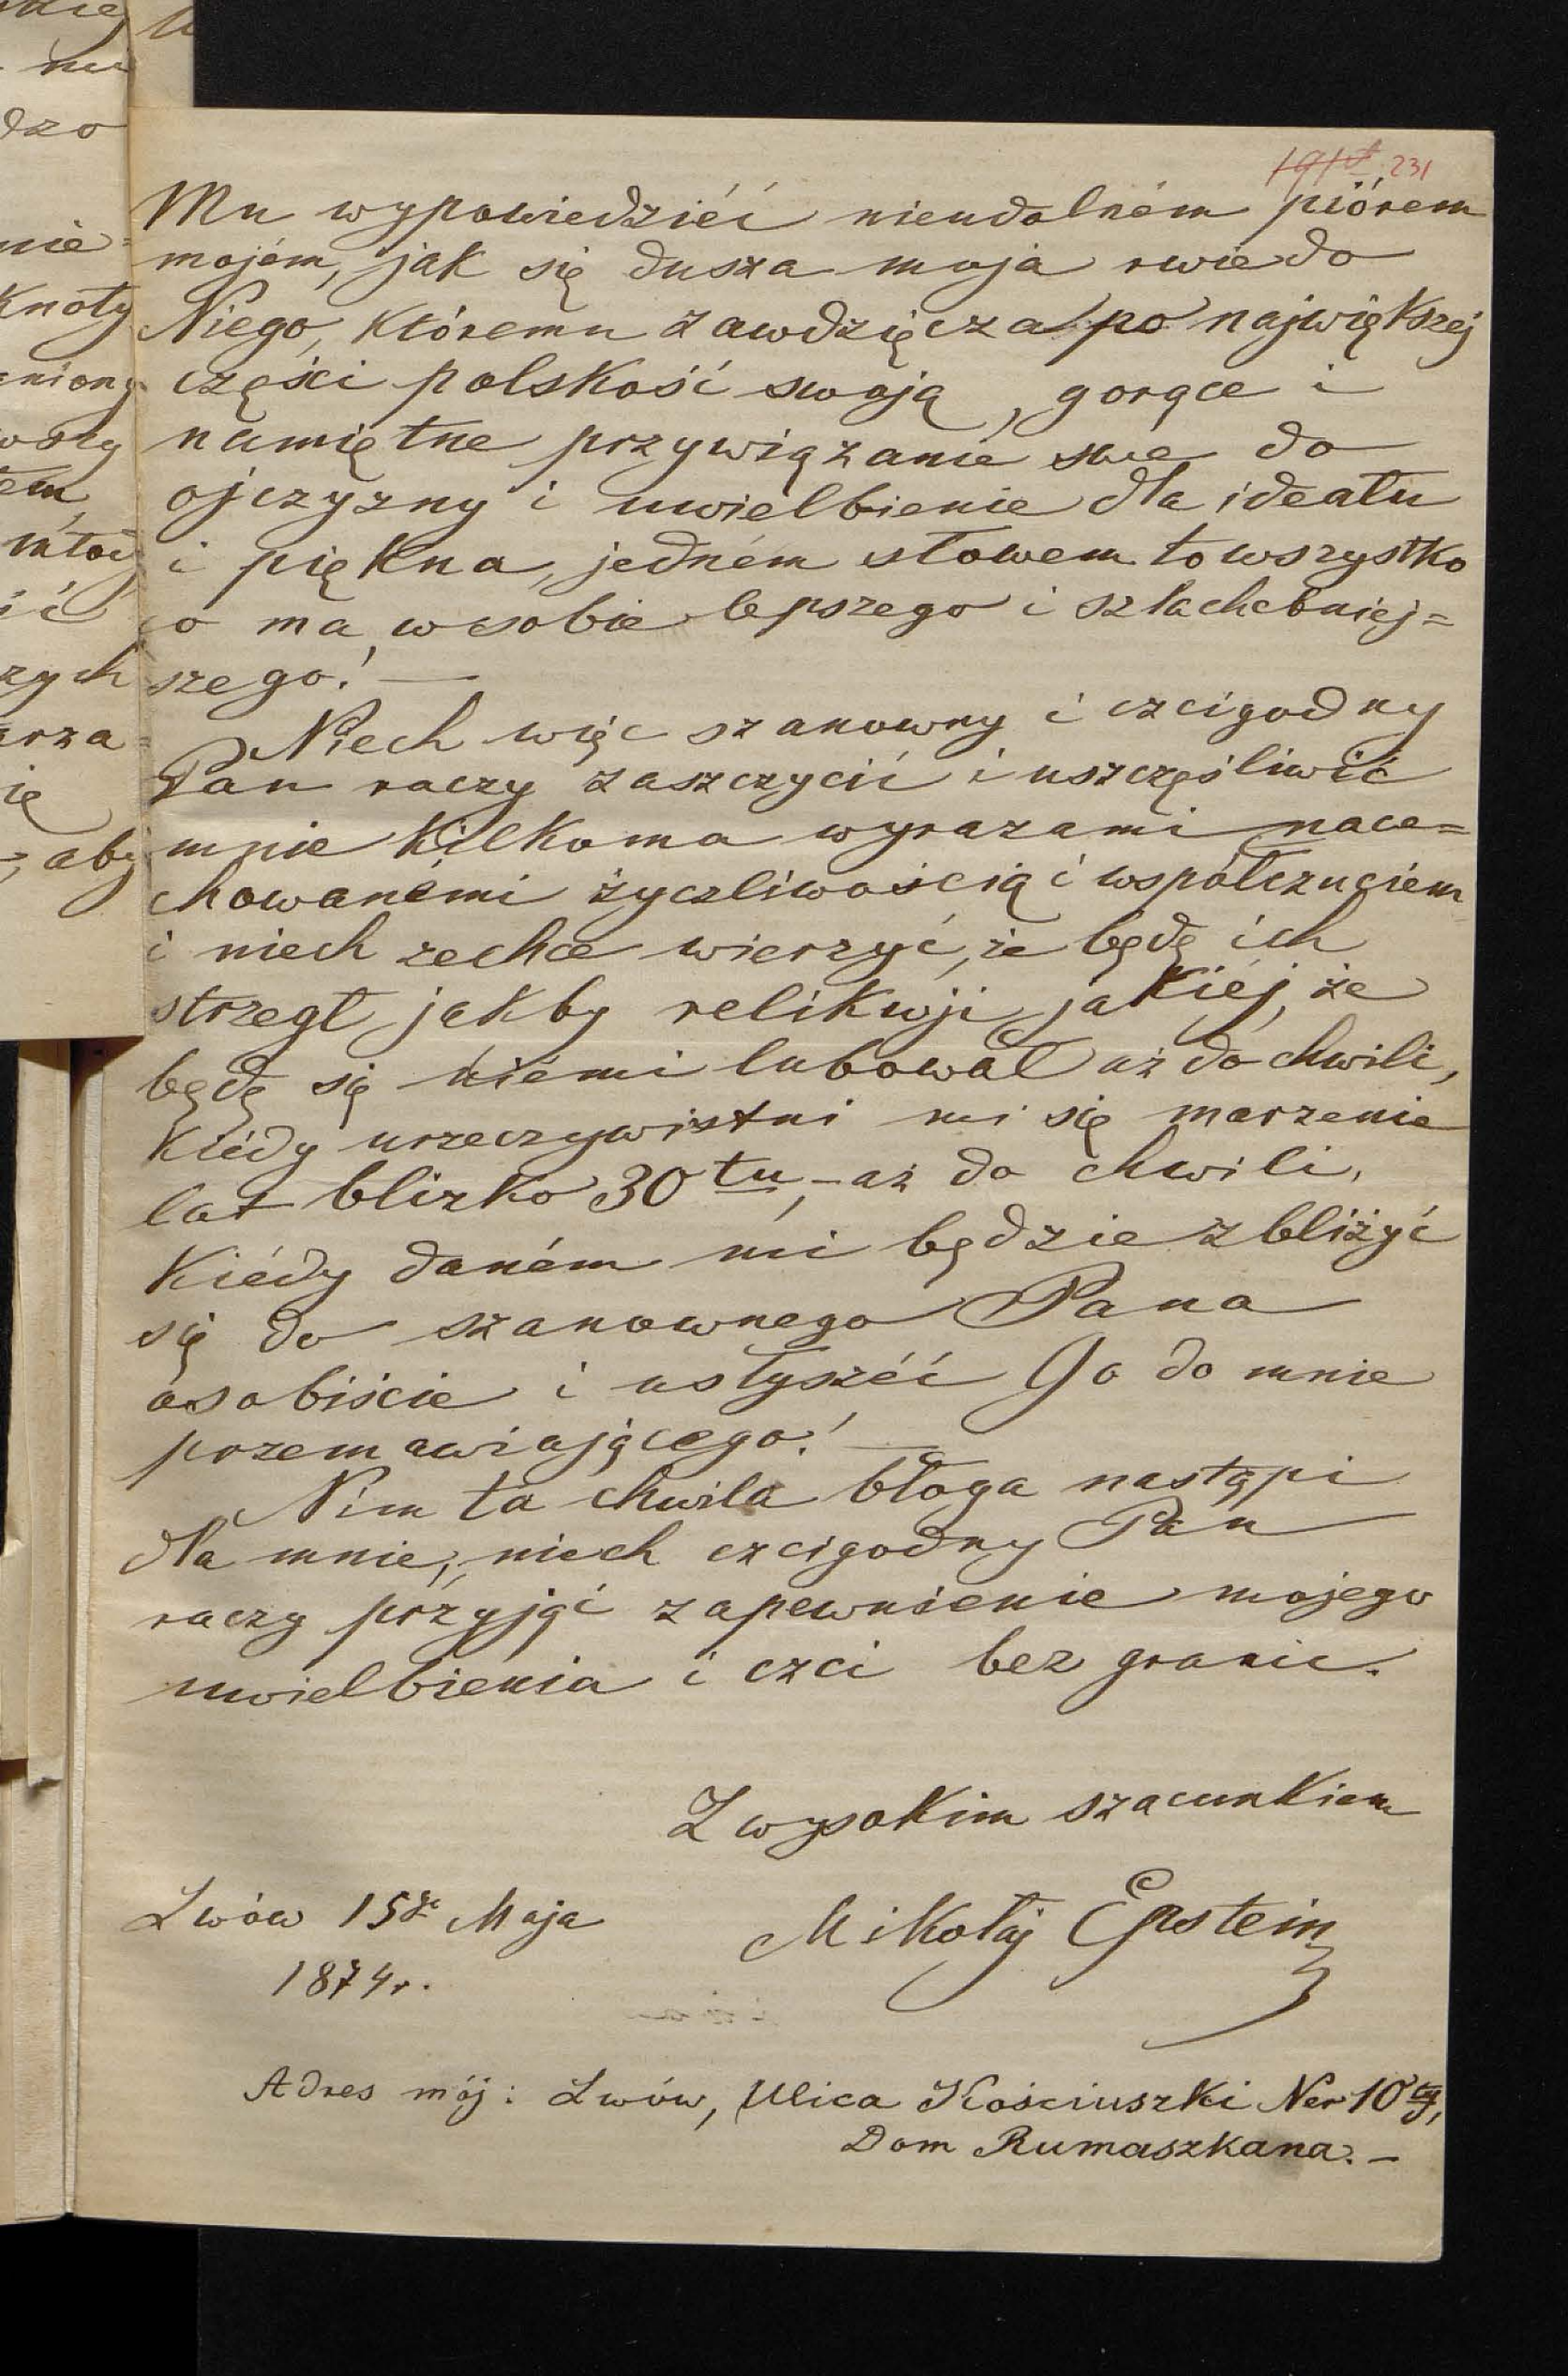 231
Mu wypowiedziéć nieudolném piórem
mojém, jak się dusza moja rwie do
Niego, któremu zawdzięcza po największej
części polskość swoją, gorące i
namiętne przywiązanie swe do
ojczyzny i uwielbienie dla ideału
i piękna, jedném słowem to wszystko
co ma w sobie lepszego i szlachetniej=
szego! —
Niech więc szanowny i czcigodny
Pan raczy zaszczycić i uszczęśliwić
mnie kilkoma wyrazami nace=
chowanémi życzliwością i współczuciem
i niech zechce wierzyć, że będę ich
strzegł jakby relikwji jakiéj, że
będę się niemi lubował aż do chwili,
kiédy urzeczywistni mi się marzenie
lat blizko 30tu, – aż do chwili,
kiédy daném mi będzie zbliżyć
się do szanownego Pana
osobiście i usłyszéć Go do mnie
przemawiającego! —
Nim ta chwila błoga nastąpi
dla mnie, niech czcigodny Pan
raczy przyjąć zapewnienie mojego
uwielbienia i czci bez granic.
Z wysokim szacunkiem
Lwów 15go Maja
1874r.
Mikołaj Epstein
Adres mój: Lwów, Ulica Kościuszki Ner 10ty,
Dom Rumaszkana. –